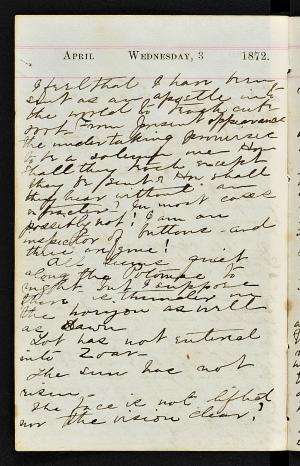 April Wednesday, 3 1872.
I feel that I have been
sent as an apostle into
the world to teach but
from present appearance
the undertaking promises
to be a solemn one How
shall they teach except
they be sent & How shall
they hear without an
instructor? In most cases
possibly not! I am an
inspector of buttons - and
this anyone!
All seems quiet
along the Potomac to
night but I suppose
there is thunder in
the horizon as well
as Dawn
Lot has not entered
into Zoar -
The sun has not
risen -
The face is not lifted
nor the vision clear!